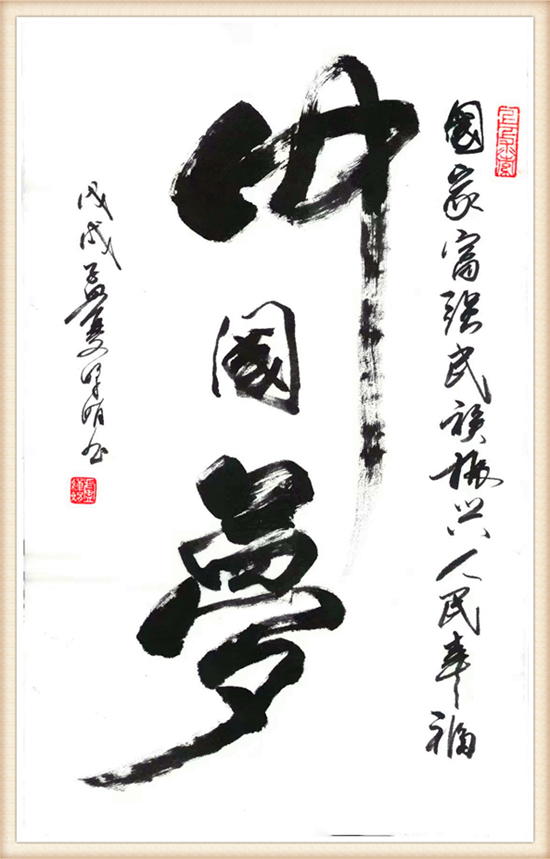 國家富强民族振兴人民幸福
中國夢
戊戌孟夏 明书